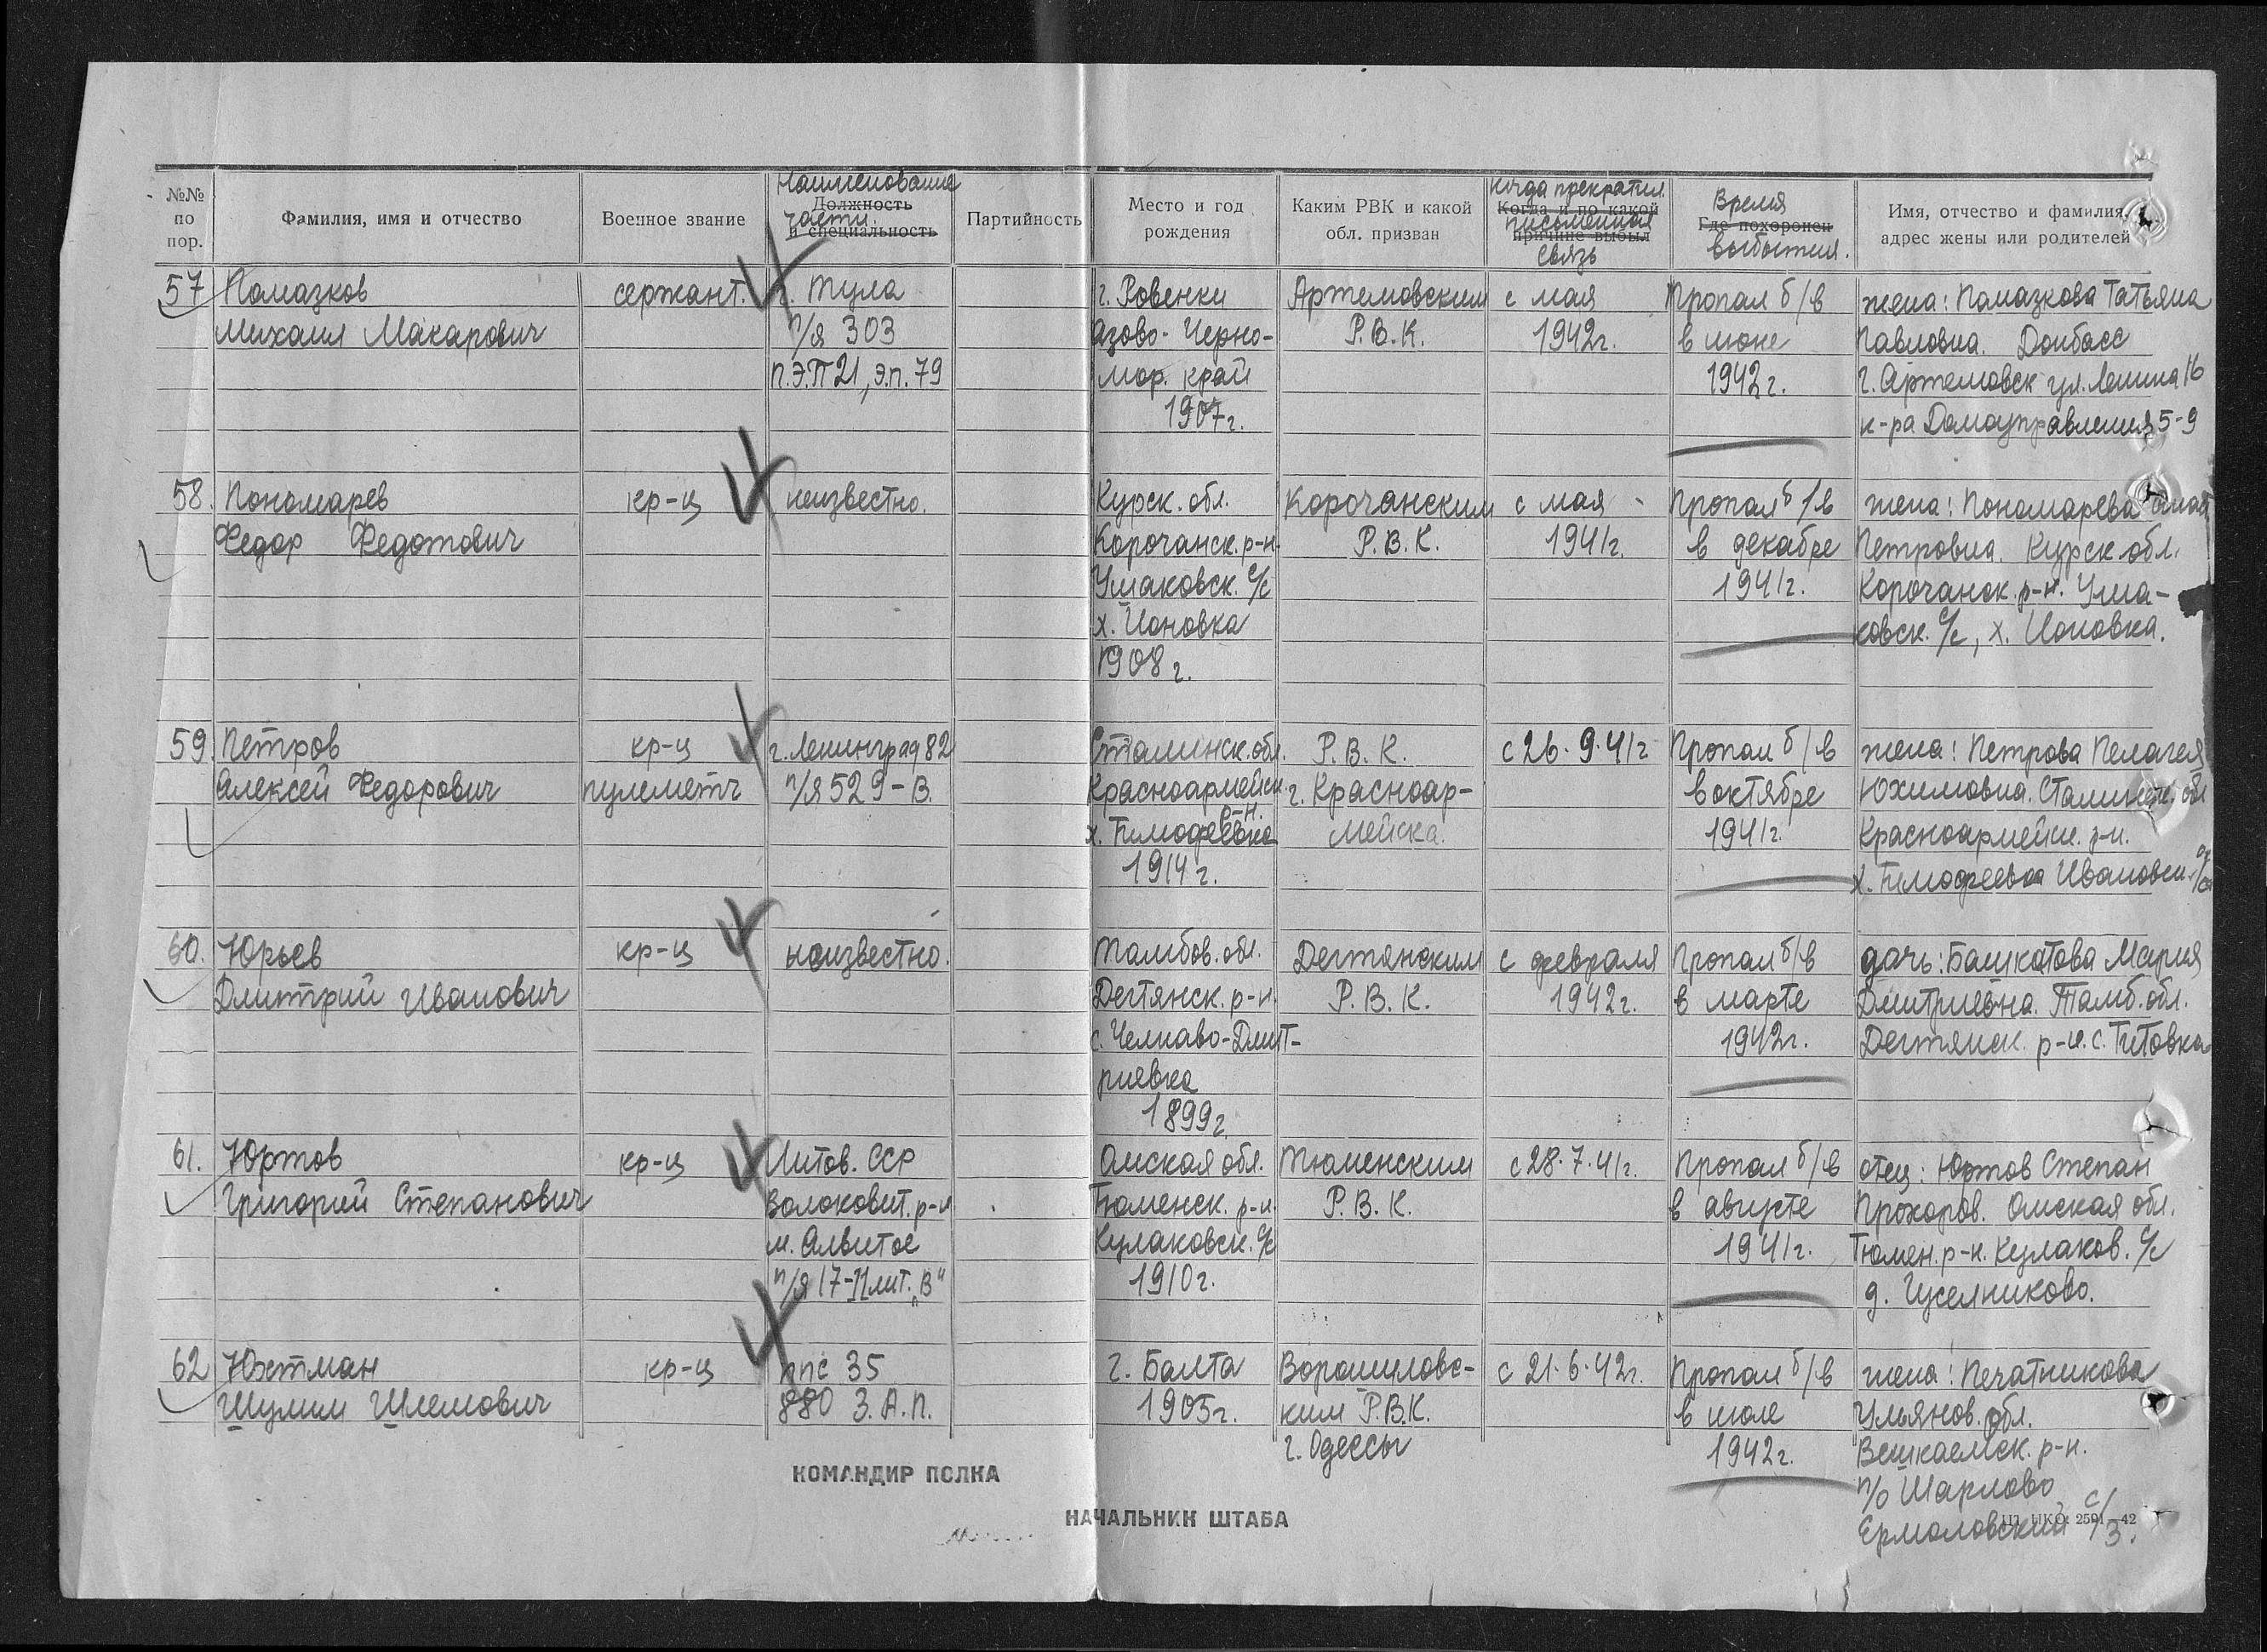 №№ по пор.
Фамилия, имя и отчество
Военное звание
Наименование части.
Должность и специальность
Партийность
Место и год рождения
Каким РВК и какой обл. призван
когда прекратил. письменная связь
Когда и по какой причине выбыл
Время выбытия.
Где похоронен
Имя, отчество и фамилия, адрес жены или родителей
57 Помазков сержант. г. Тула г. Ровенки Артемовским с мая Пропал б/в жена: Помазкова Татьяна
Михаил Макарович п/я 303 Азово-Черно- Р.В.К. 1942г. в июне Павловна. Донбасс
п.э.п 21, э.п. 79 мор. край 1942г. г. Артемовск ул. Ленина 16
1907г. к-ра Домоуправления 5-9
58. Пономарев кр-ц неизвестно. Курск. обл. Корочанским с мая - Пропал б/в жена: Пономарева
Федор Федотович Корочанск. р-н. Р.В.К. 1941г. в декабре Петровна. Курск. обл.
Ушаковск. с/с 1941г. Корочанск. р-н. Уша-
х. Ионовка ковск. с/с, х. Ионовка.
1908г.
59. Петров кр-ц г. Ленинград 82 Сталинск. обл. Р.В.К. с 26.9.41г Пропал б/в жена: Петрова Пелагея
Алексей Федорович пулеметч п/я 529-В. Красноармейск. р-н. г. Красноар- в октябре Юхимовна. Сталинск. обл
х. Тимофеевка мейска. 1941г. Красноармейск. р-н.
1914г. х. Тимофеевка Ивановск.
60. Юрьев кр-ц неизвестно. Тамбов. обл. Дегтянским с февраля Пропал б/в дочь: Башкатова Мария
Дмитрий Иванович Дегтянск. р-н. Р.В.К. 1942г. в марте Дмитриевна. Тамб. обл.
с. Челнаво-Дмит- 1942г. Дегтянск. р-н. с. Титовка
риевка
1899г.
61. Юртов кр-ц Литов. ССР Омская обл. Тюменским с 28.7.41г. Пропал б/в отец: Юртов Степан
Григорий Степанович Волоковит. р-н Тюменск. р-н. Р.В.К. в августе Прохоров. Омская обл.
м. Алвитое Кулаковск. с/с 1941г. Тюмен. р-н. Кулаков. с/с
п/я 17-II лит. „В" 1910г. д. Гуселниково.
62 Юхтман кр-ц ппс 35 г. Балта Ворошиловс- с 21.6.42г. Пропал б/в жена: Печатникова
Шулим Шлемович 880 З.А.П. 1905г. ким Р.В.К. в июле Ульянов. обл.
г. Одессы 1942г. Вешкаемск. р-н.
п/о Шарлово
Ермоловский с/з.
КОМАНДИР ПОЛКА
НАЧАЛЬНИК ШТАБА
НКО. 2591—42